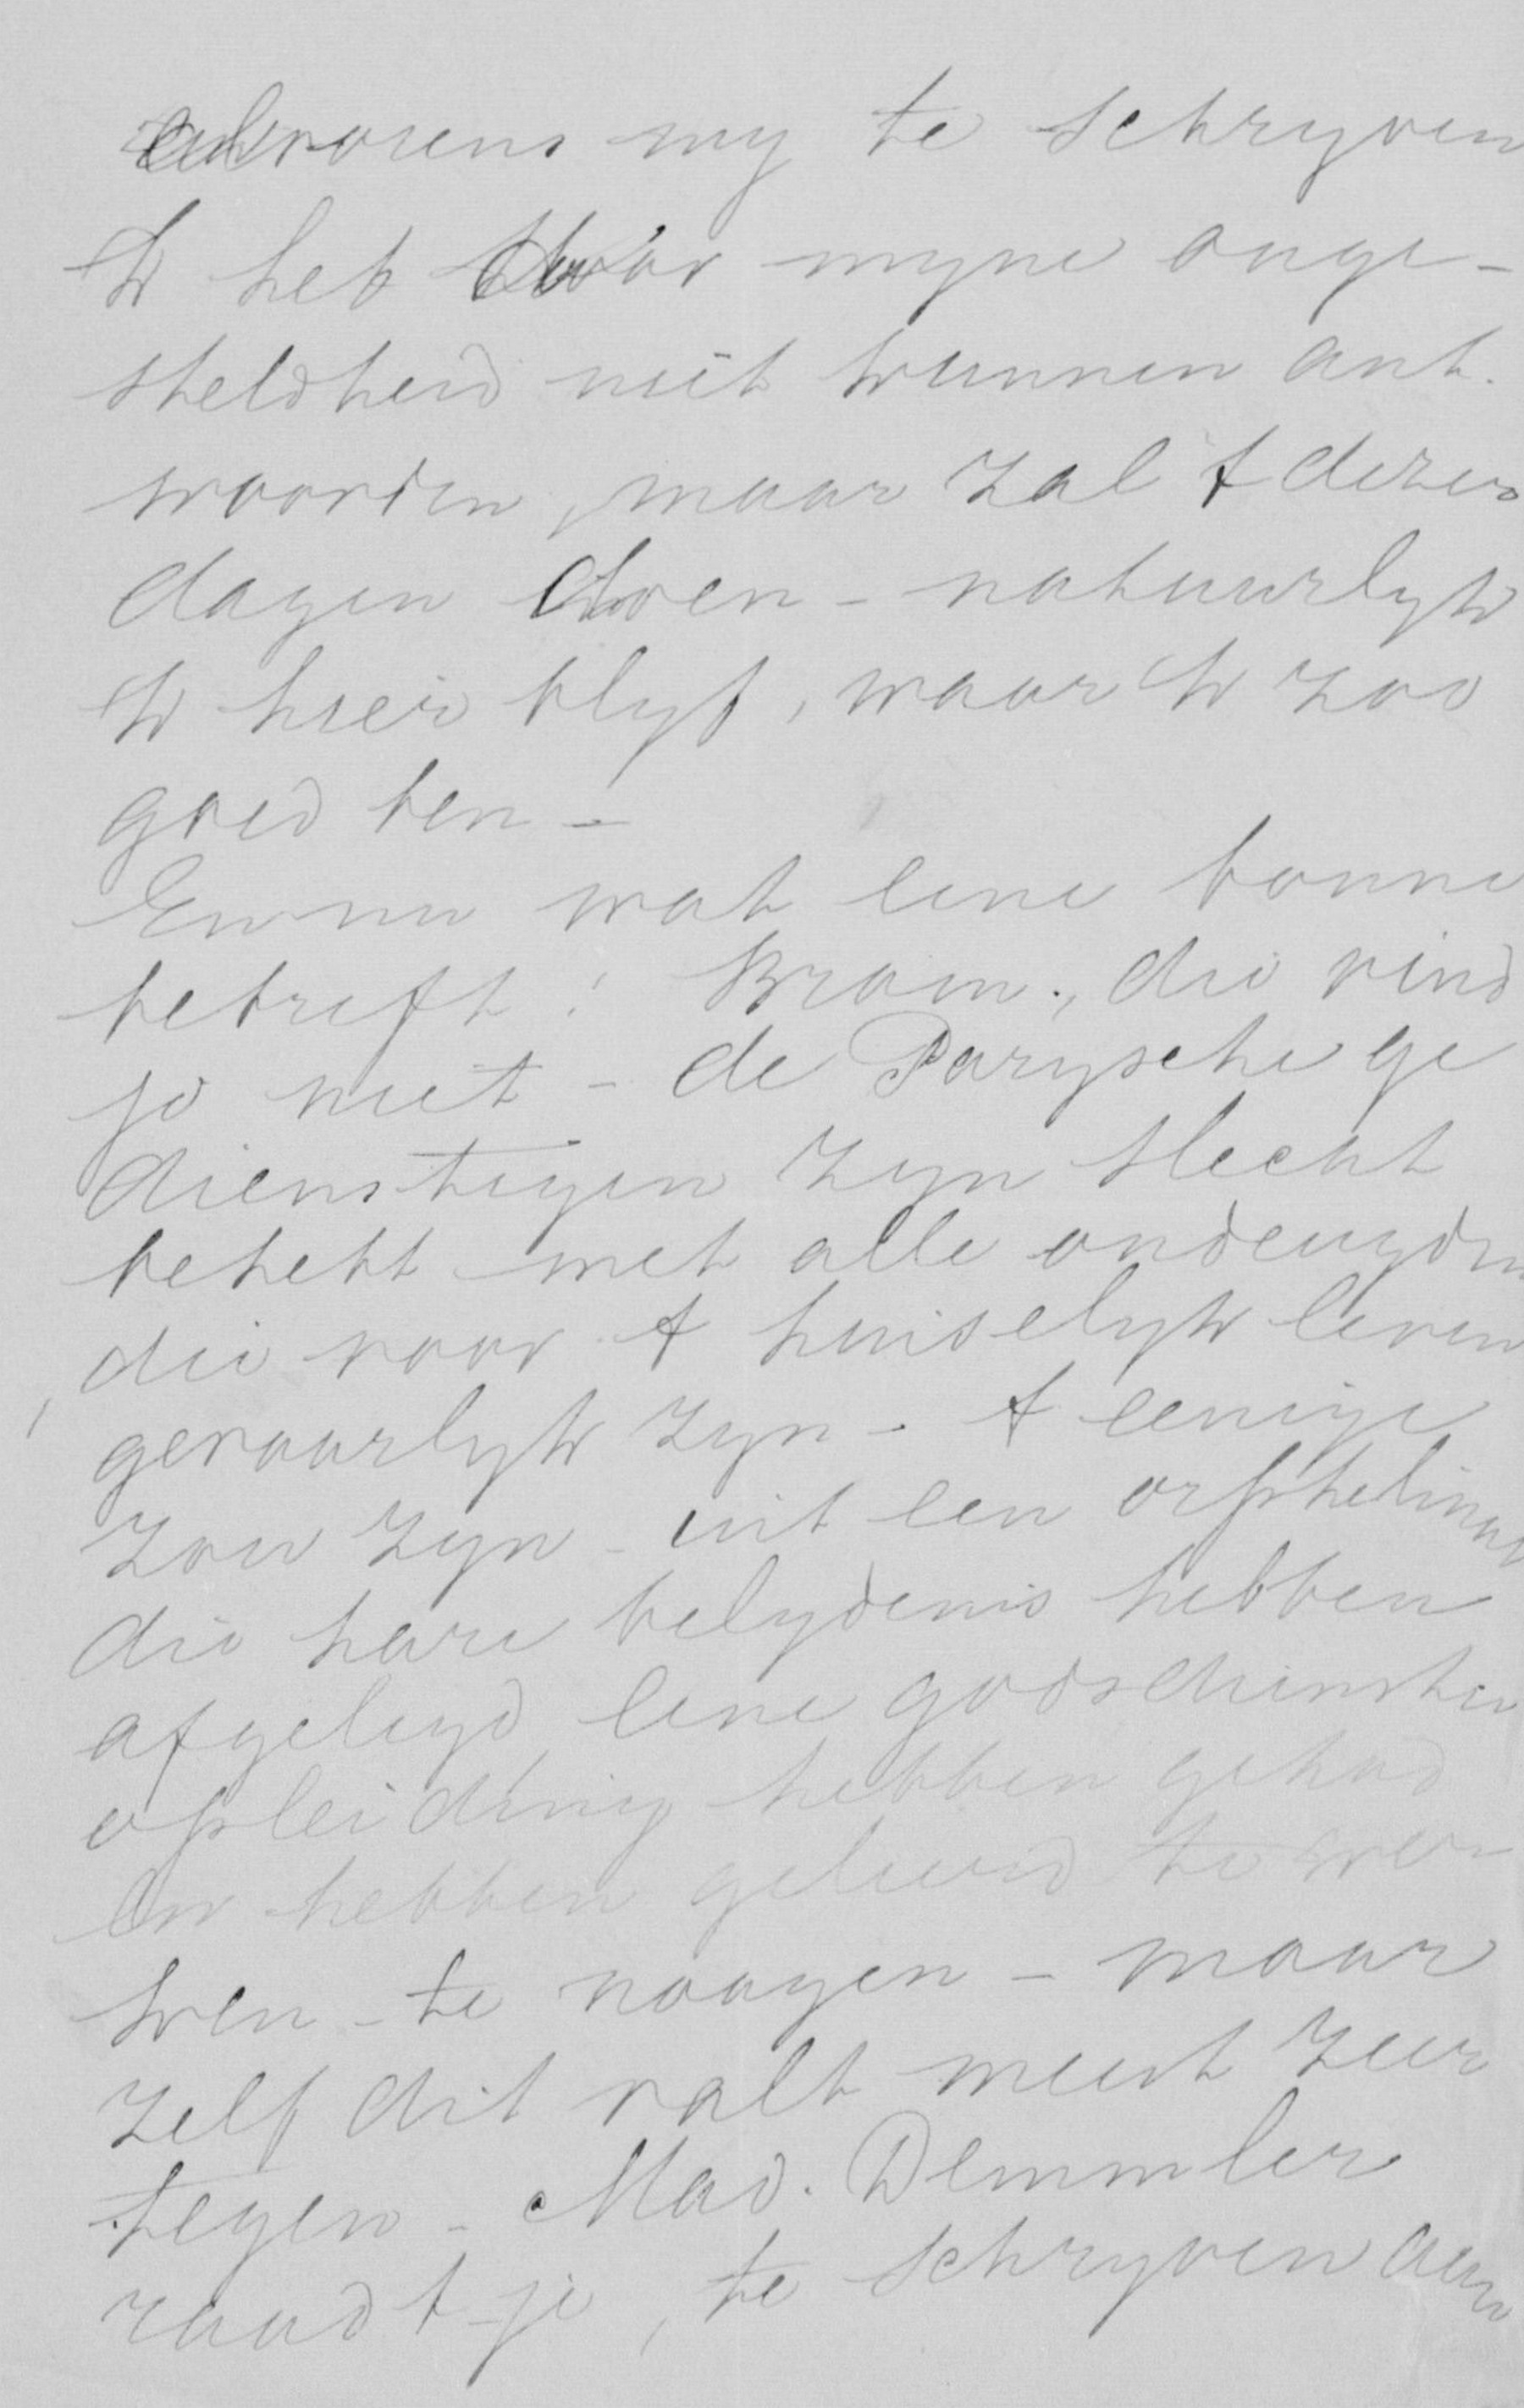 alvorens my te schryven
Ik heb door myne onge-
steldheid niet kunnen ant-
woorden, maar zal 't dezer
dagen doen - natuurlyk
ik hier blyf, waar ik zoo
goed ben -
En nu wat eene bonne
betreft! Bram., die vind
je niet - de Parysche ge
dienstigen zyn slecht
behebt met alle ondeugden
die voor 't huiselyk leven
gevaarlyk zyn - 't eenige
zou zyn - uit een orphelinat
die hare belydenis hebben
afgelegd eene godsdiensten
opleiding hebben gehad
en hebben geleerd te wer-
ken - te naayen - maar
zelf dit valt meest zeer
tegen - Mad. Demmler
raadt je, te schryven aan